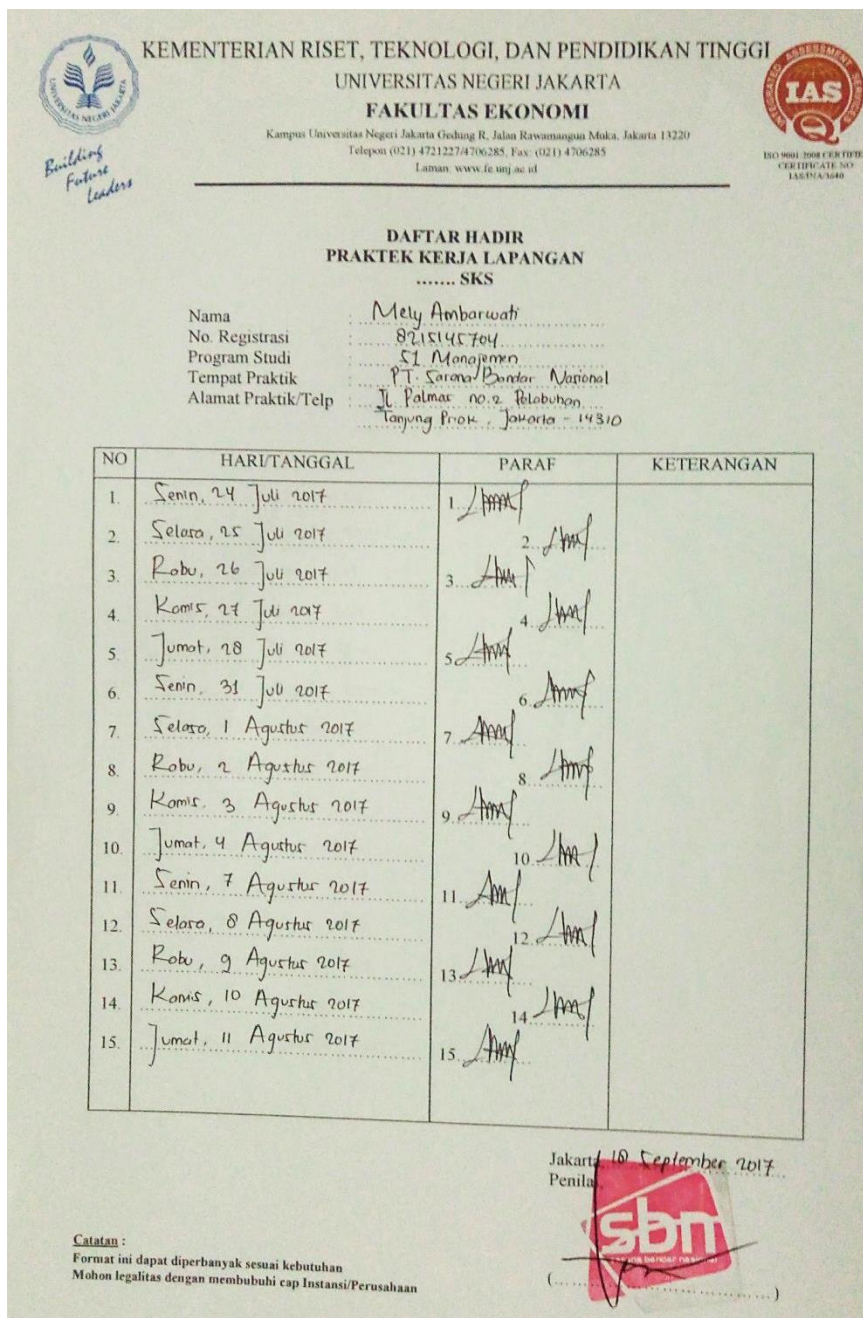 KEMENTERIAN RISET, TEKNOLOGI, DAN PENDIDIKAN TINGGI
UNIVERSITAS NEGERI JAKARTA
FAKULTAS EKONOMI
Kampus Universitas Negeri Jakarta Gedung R, Jalan Rawamangun Muka, Jakarta 13220
Telepon (021) 4721227/4706285, Fax: (021) 4706285
Laman: www.fe.unj.ac.id
UNIVERSITAS NEGERI JAKARTA
Building
Future
Leaders
INTEGRATED ASSESSMENT SERVICES
IAS
ISO 9001:2008 CERTIFIE
CERTIFICATE NO
DAFTAR HADIR
PRAKTEK KERJA LAPANGAN
....... SKS
Nama : Mely Ambarwati
No. Registrasi : 8215145704
Program Studi : S1 Manajemen
Tempat Praktik : PT. Sarana Bandar Nasional
Alamat Praktik/Telp : Jl. Palmas no.2 Pelabuhan
Tanjung Priok, Jakarta - 14310
NO HARI/TANGGAL PARAF KETERANGAN
1. Senin, 24 Juli 2017 1.
2. Selasa, 25 Juli 2017 2.
3. Rabu, 26 Juli 2017 3.
4. Kamis, 27 Juli 2017 4.
5. Jumat, 28 Juli 2017 5.
6. Senin, 31 Juli 2017 6.
7. Selasa, 1 Agustus 2017 7.
8. Rabu, 2 Agustus 2017 8.
9. Kamis, 3 Agustus 2017 9.
10. Jumat, 4 Agustus 2017 10.
11. Senin, 7 Agustus 2017 11.
12. Selasa, 8 Agustus 2017 12.
13. Rabu, 9 Agustus 2017 13.
14. Kamis, 10 Agustus 2017 14.
15. Jumat, 11 Agustus 2017 15.
Jakarta, 18 September 2017
Penilai
sbn
sarana bandar nasional
(..............................)
Catatan :
Format ini dapat diperbanyak sesuai kebutuhan
Mohon legalitas dengan membubuhi cap Instansi/Perusahaan